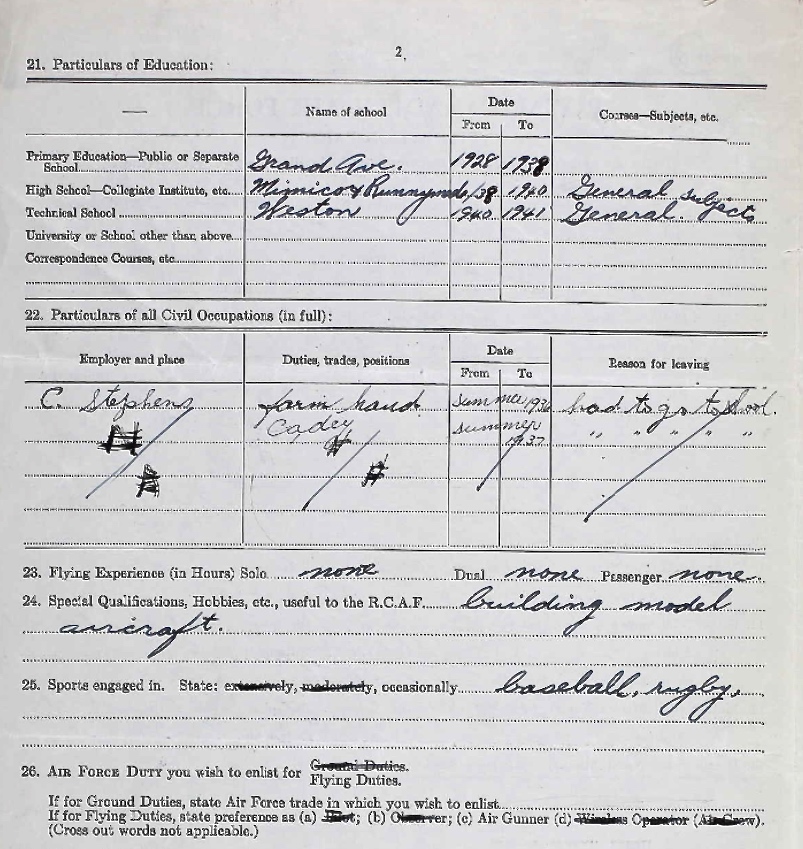 2.
21. Particulars of Education:
— Name of school Date Courses—Subjects, etc.
From To
Primary Education—Public or Separate
School Grand Ave. 1928 1938
High School—Collegiate Institute, etc. Mimico & Runnymede /38 1940 General Subjects
Technical School Weston 1940 1941 General.
University or School other than above
Correspondence Courses, etc.
22. Particulars of all Civil Occupations (in full):
Employer and place Duties, trades, positions Date Reason for leaving
From To
C. Stephens farm hand summer 1936 had to go to school.
Cadey summer 1937 " " " " "
23. Flying Experience (in Hours) Solo none Dual none Passenger none.
24. Special Qualifications, Hobbies, etc., useful to the R.C.A.F. building model
aircraft.
25. Sports engaged in. State: extensively, moderately, occasionally baseball, rugby,
26. AIR FORCE DUTY you wish to enlist for Ground Duties.
Flying Duties.
If for Ground Duties, state Air Force trade in which you wish to enlist
If for Flying Duties, state preference as (a) Pilot; (b) Observer; (c) Air Gunner (d) Wireless Operator (Air Crew).
(Cross out words not applicable.)